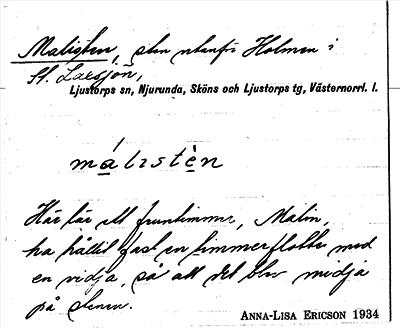 Malisten, sten utanför Holmen i
St. Laxsjön,
Ljustorps sn, Njurunda, Sköns och Ljustorps tg, Västernorrl. l.
málistèn
Här lär ett fruntimmer, Malin,
ha hållit fast en timmerflotte med
en vidja, så att det blev midja
på stenen.
ANNA-LISA ERICSON 1934